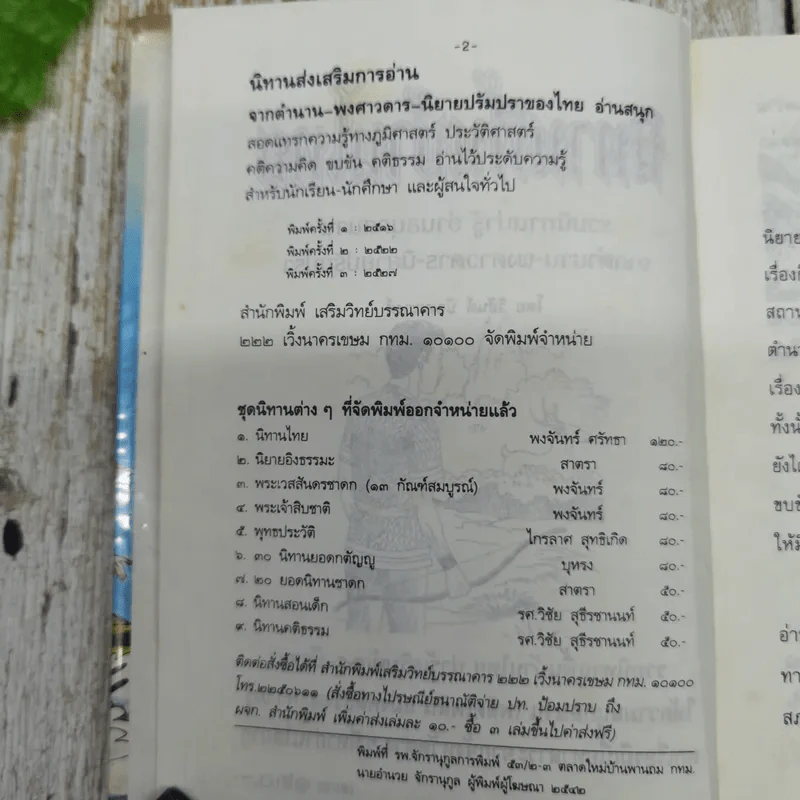 -2-
นิทานส่งเสริมการอ่าน
จากตำนาน-พงศาวดาร-นิยายปรัมปราของไทย อ่านสนุก
สอดแทรกความรู้ทางภูมิศาสตร์ ประวัติศาสตร์
คติความคิด ขบขัน คติธรรม อ่านไว้ประดับความรู้
สำหรับนักเรียน-นักศึกษา และผู้สนใจทั่วไป
พิมพ์ครั้งที่ ๑ : ๒๕๑๖
พิมพ์ครั้งที่ ๒ : ๒๕๒๒
พิมพ์ครั้งที่ ๓ : ๒๕๒๗
สำนักพิมพ์ เสริมวิทย์บรรณาคาร
๒๒๒ เวิ้งนาครเขษม กทม. ๑๐๑๐๐ จัดพิมพ์จำหน่าย
ชุดนิทานต่าง ๆ ที่จัดพิมพ์ออกจำหน่ายแล้ว
๑. นิทานไทย พงจันทร์ ศรัทธา ๑๒๐.-
๒. นิยายอิงธรรมะ สาตรา ๘๐.-
๓. พระเวสสันดรชาดก (๑๓ กัณฑ์สมบูรณ์) พงจันทร์ ๘๐.-
๔. พระเจ้าสิบชาติ พงจันทร์ ๘๐.-
๕. พุทธประวัติ ไกรลาศ สุทธิเกิด ๘๐.-
๖. ๓๐ นิทานยอดกตัญญู บุหรง ๘๐.-
๗. ๒๐ ยอดนิทานชาดก สาตรา ๕๐.-
๘. นิทานสอนเด็ก รศ.วิชัย สุธีรชานนท์ ๕๐.-
๙. นิทานคติธรรม รศ.วิชัย สุธีรชานนท์ ๕๐.-
ติดต่อสั่งซื้อได้ที่ สำนักพิมพ์เสริมวิทย์บรรณาคาร ๒๒๒ เวิ้งนาครเขษม กทม. ๑๐๑๐๐
โทร.๒๒๕๐๖๑๑ (สั่งซื้อทางไปรษณีย์ธนาณัติจ่าย ปท. ป้อมปราบ ถึง
ผจก. สำนักพิมพ์ เพิ่มค่าส่งเล่มละ ๑๐.- ซื้อ ๓ เล่มขึ้นไปค่าส่งฟรี)
พิมพ์ที่ รพ.จักรานุกูลการพิมพ์ ๕๓/๒-๓ ตลาดใหม่บ้านพานถม กทม.
นายอำนวย จักรานุกูล ผู้พิมพ์ผู้โฆษณา ๒๕๔๒
นิยาย
สถาน
เรื่อง
ทั้งนั้
ขบขั
ให้มี